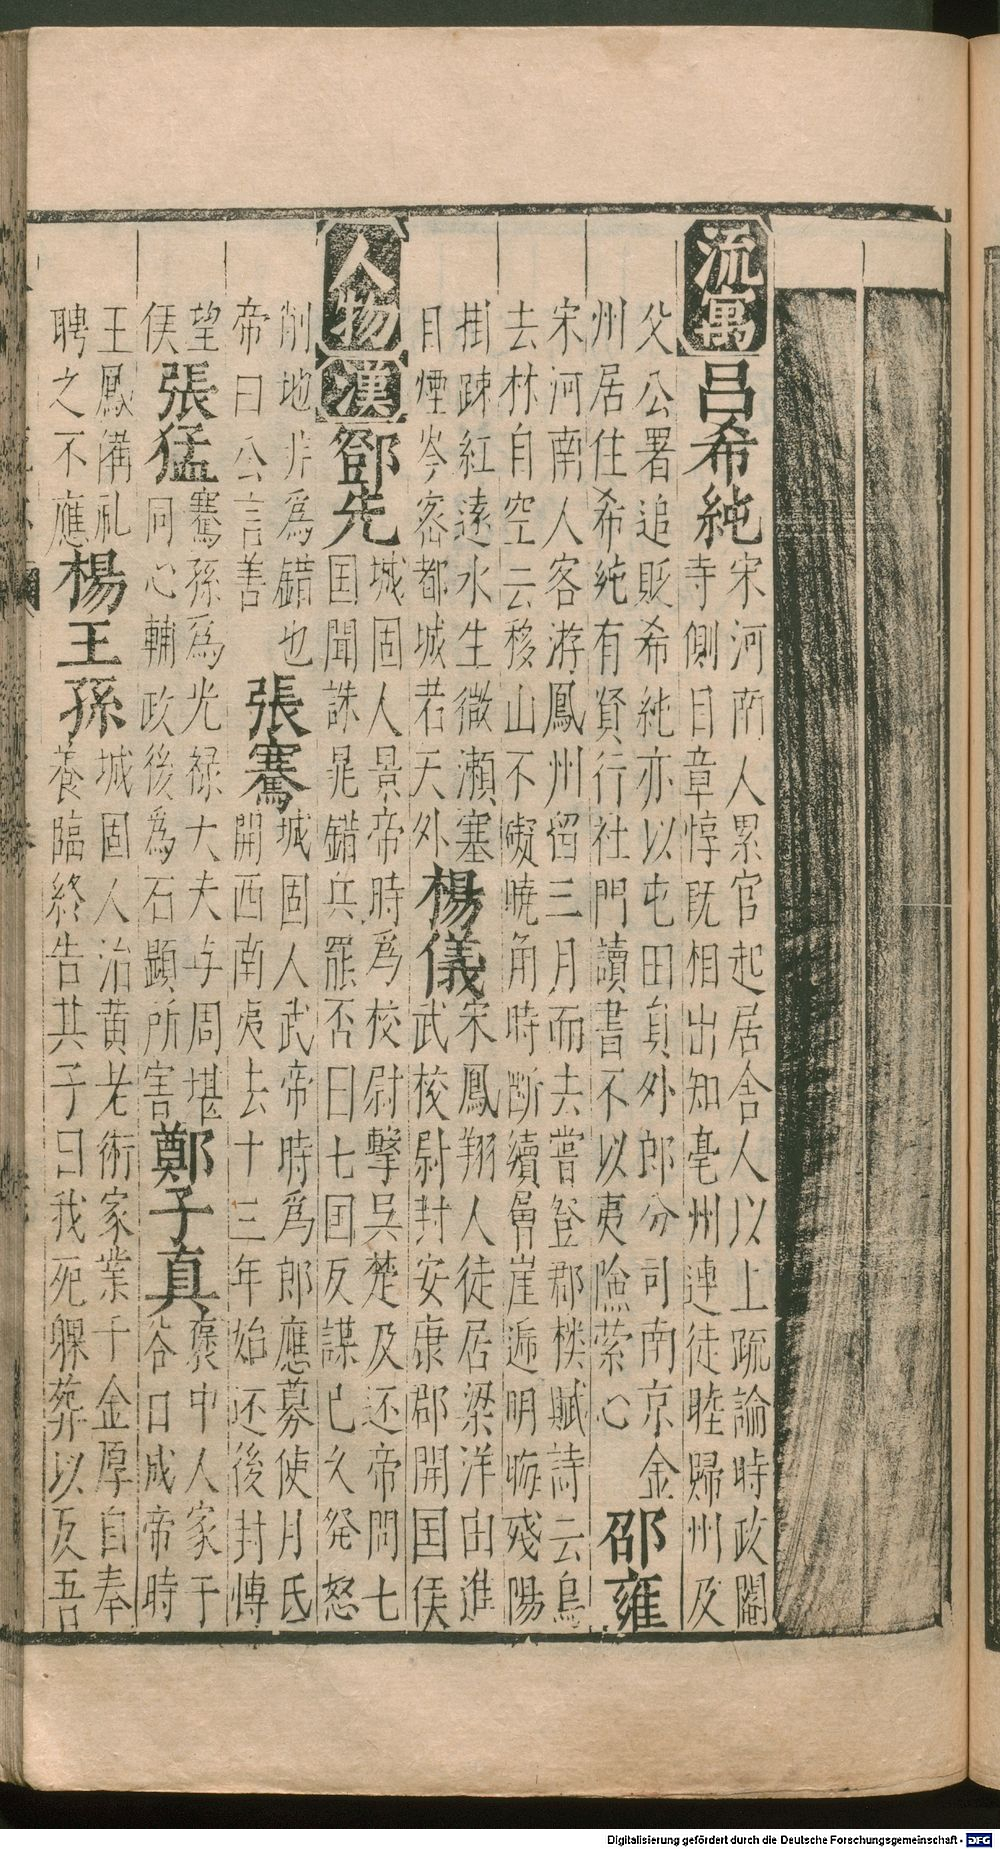 流寓
呂希純
宋河南人累官起居舍人以上疏論時政闇
寺側目章惇既相出知亳州連徒睦歸州及
父公署追貶希純亦以屯田員外郎分司南京金
州居住希純有賢行社門讀書不以夷險縈心
邵雍
宋河南人客游鳳州留三月而去嘗登郡樓賦詩云烏
去林自空云移山不礙曉角時断續曾崖逓明晦殘陽
掛疎紅遠水生微瀨塞
目煙岑密都城若天外
楊儀
宋鳳翔人徒居梁洋由進
武校尉封安康郡開囯侯
人物
漢
鄧先
城固人景帝時爲校尉擊吳楚及还帝問七
囯聞誅晁錯兵罷否曰七囯反謀已久発怒
削地非爲錯也
帝曰公言善
張騫
城固人武帝時爲郎應募使月氏
開西南夷去十三年始还後封愽
望
侯
張猛
騫孫爲光禄大夫与周堪
同心輔政後爲石顕所害
鄭子真
褒中人家于
谷口成帝時
王鳳備礼
聘之不應
楊王孫
城固人治黄老術家業千金厚自奉
養臨終告其子曰我死躶葬以反吾
Digitalisierung gefördert durch die Deutsche Forschungsgemeinschaft - DFG